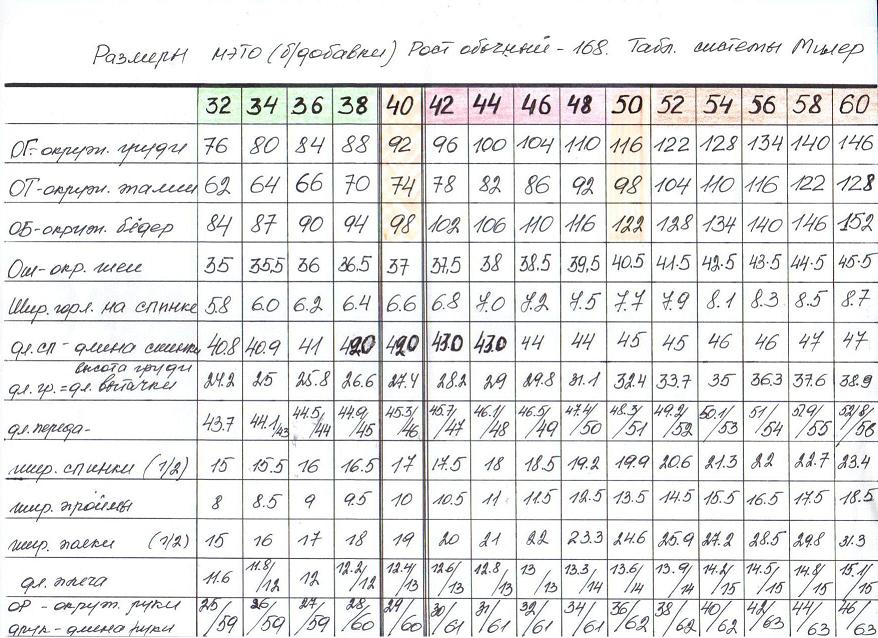 Размеры МЭТО (б/добавки) Рост обычный - 168. Табл. системы Мюллер
32 34 36 38 40 42 44 46 48 50 52 54 56 58 60
ОГ-окруж. груди 76 80 84 88 92 96 100 104 110 116 122 128 134 140 146
ОТ-окруж. талии 62 64 66 70 74 78 82 86 92 98 104 110 116 122 128
ОБ-окруж. бёдер 84 87 90 94 98 102 106 110 116 122 128 134 140 146 152
Ош-окр. шеи 35 35,5 36 36.5 37 37,5 38 38.5 39,5 40.5 41.5 42.5 43.5 44.5 45.5
Шир. горл. на спинке 5.8 6.0 6.2 6.4 6.6 6.8 7.0 7.2 7.5 7.7 7.9 8.1 8.3 8.5 8.7
дл.сп - длина спинки 40.8 40.9 41 42.0 42.0 43.0 43.0 44 44 45 45 46 46 47 47
высота груди
дл. гр. = дл. выточки 24.2 25 25.8 26.6 27.4 28.2 29 29.8 31.1 32.4 33.7 35 36.3 37.6 38.9
дл. переда- 43.7 44.1/43 44.5/44 44.9/45 45.3/46 45.7/47 46.1/48 46.5/49 47.4/50 48.3/51 49.2/52 50.1/53 51/54 51.9/55 52,8/56
шир. спинки (1/2) 15 15.5 16 16.5 17 17.5 18 18.5 19.2 19.9 20.6 21.3 22 22.7 23.4
шир. проймы 8 8.5 9 9.5 10 10.5 11 11.5 12.5 13.5 14.5 15.5 16.5 17.5 18.5
шир. полки (1/2) 15 16 17 18 19 20 21 22 23.3 24.6 25.9 27.2 28.5 29.8 31.3
дл. плеча 11.6 11.8/12 12 12.2/12 12.4/13 12.6/13 12.8/13 13/13 13.3/14 13.6/14 13.9/14 14.2/15 14.5/15 14.8/15 15.1/15
ОР - окруж. руки 25 26 27 28 29 30 31 32 34 36 38 40 42 44 46
друк - длина руки /59 /59 /59 /60 /60 /61 /61 /61 /61 /62 /62 /62 /63 /63 /63